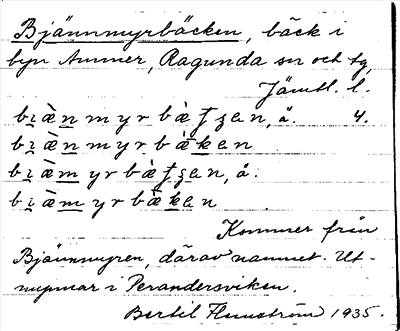 Bjännmyrbäcken, bäck i
byn Ammer, Ragunda sn och tg,
Jämtl. l.
biὲn myrbὲʃʒen, å. 4.
biὲn myrbὲken
biὲm yrbὲʃʒen, å.
biὲm yrbὲken
Kommer från
Bjännmyren, därav namnet. Ut-
mynnar i Perandersviken.
Bertil Flemström 1935.